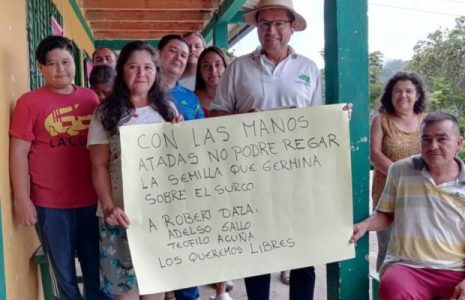 CON LAS MANOS
ATADAS NO PODRE REGAR
LA SEMILLA QUE GERMINA
SOBRE EL SURCO.
A ROBERT DAZA.
ADELSO GALLO
TEOFILO ACUÑA
LOS QUEREMOS LIBRES